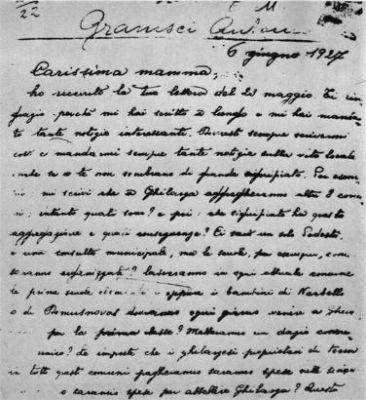 22
M
Gramsci Anton
6 giugno 1927
Carissima mamma,
ho ricevuto la tua lettera del 23 maggio. Ti rin
grazio perché mi hai scritto a lungo e mi hai manda
to tante notizie interessanti. Dovresti sempre scrivermi
così e mandarmi sempre tante notizie sulla vita locale
anche se a te non sembrano di grande significato. Per esem
pio: mi scrivi che a Ghilarza aggregheranno altri 8 comu
ni; intanto quali sono? e poi: che significato ha questa
aggregazione e quali conseguenze? Ci sarà un solo Podestà
e una consulta municipale, ma le scuole, per esempio, come
saranno organizzate? lasceranno in ogni attuale comune
le prime scuole elementari oppure i bambini di Narbello
o di Domusnovas dovranno ogni giorno venire a Ghilar
per la prima classe? Metteranno un dazio comu
unico? Le imposte che i ghilarzesi proprietari di terra
in tutti questi comuni pagheranno saranno spese nelle singo
o saranno spese per abbellire Ghilarza? Questa